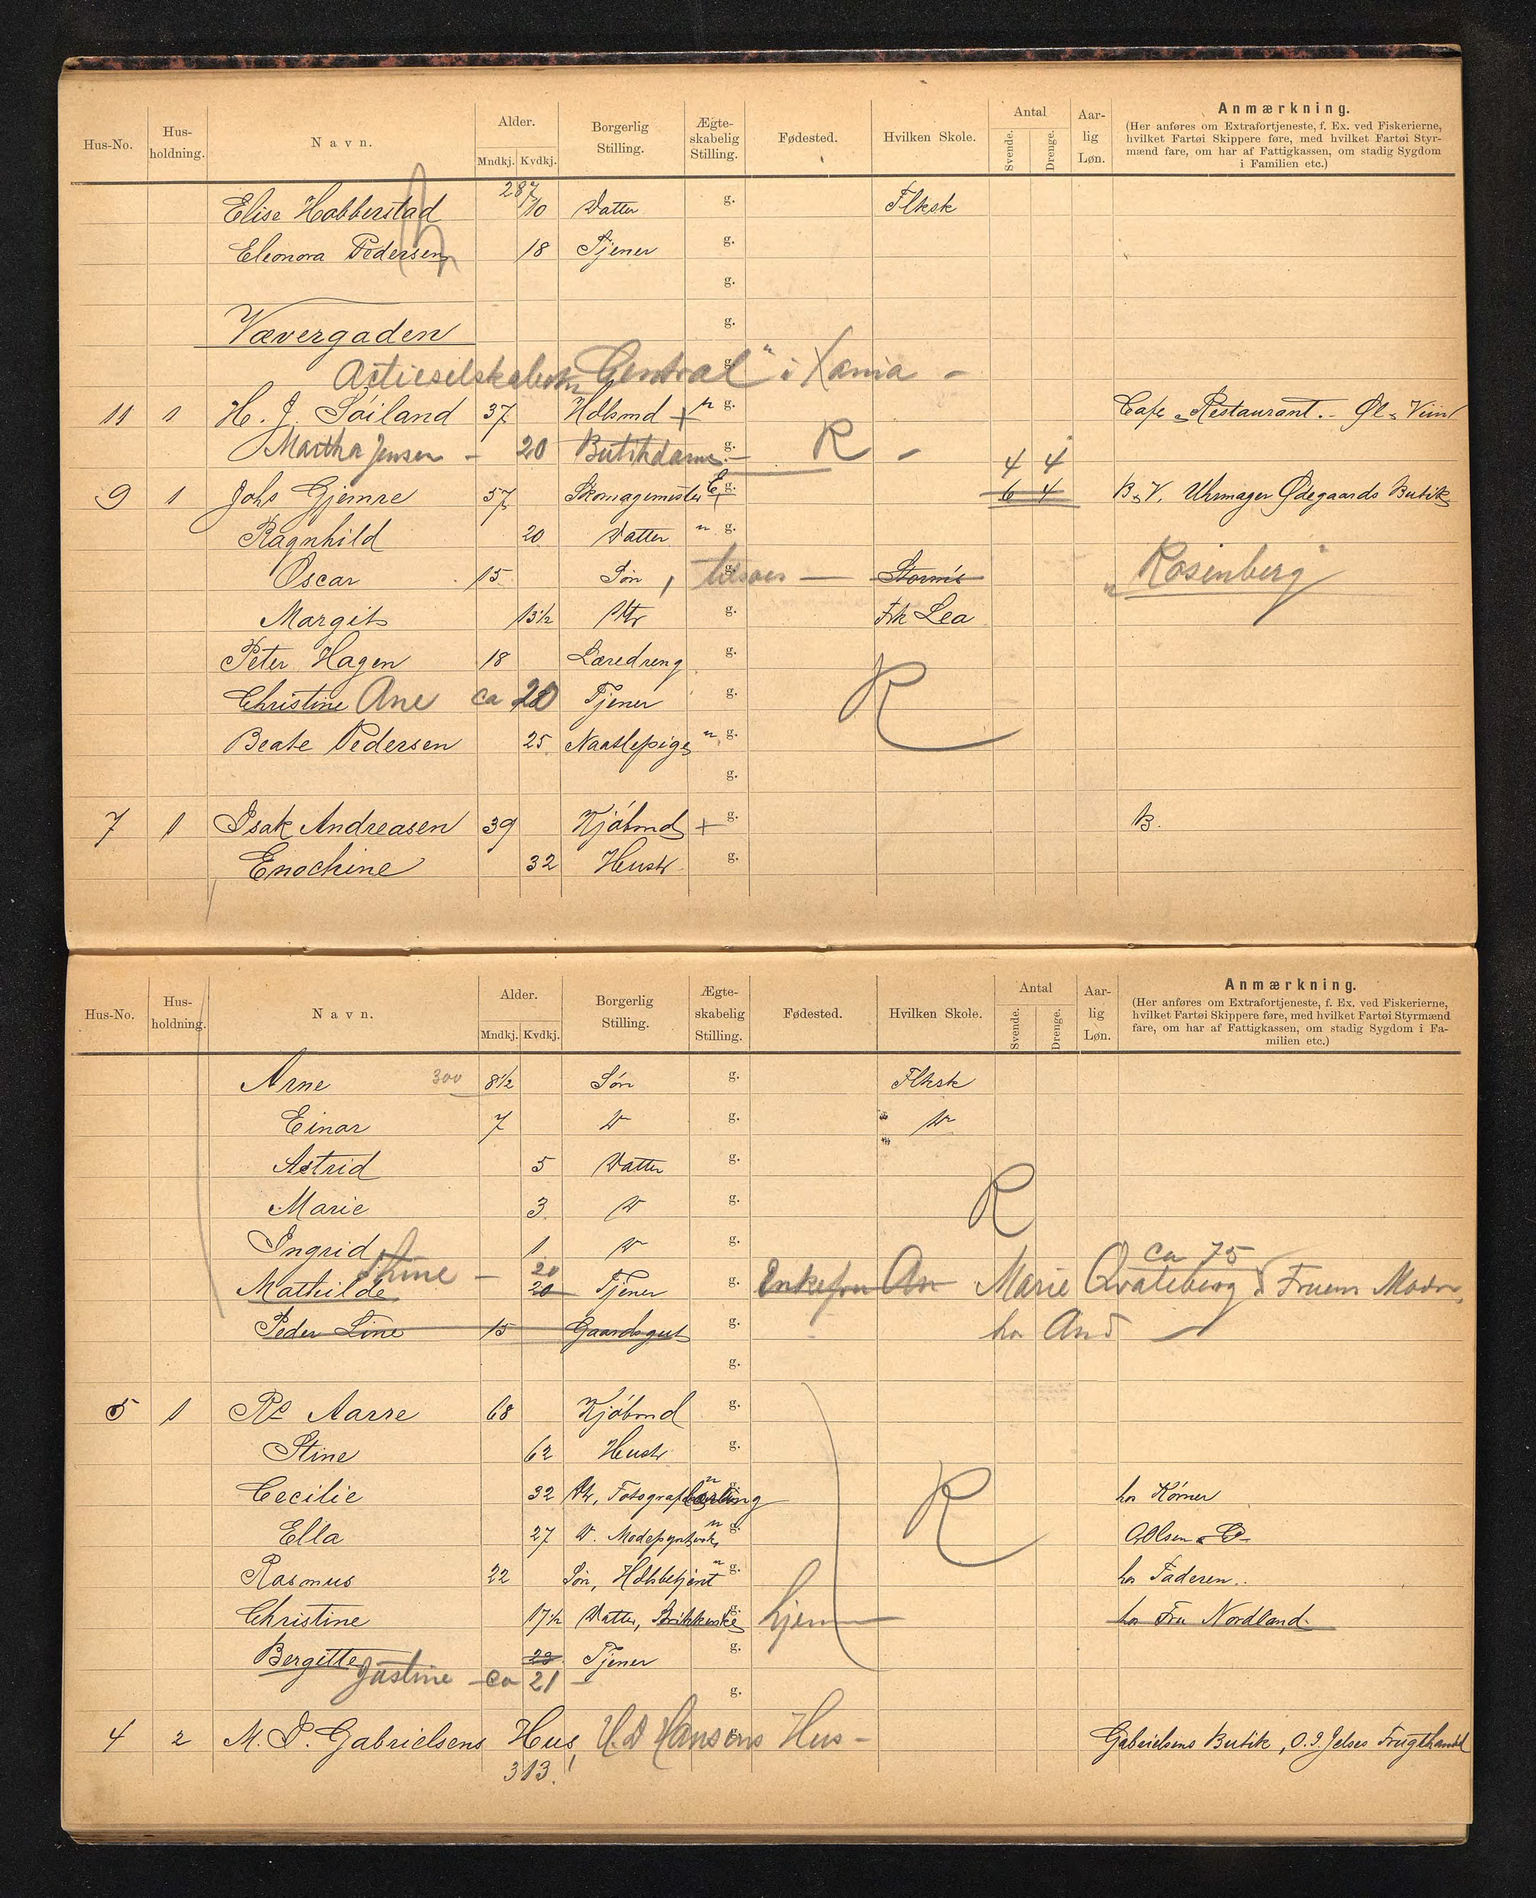 Hus-No. Hus-holdning. Navn. Alder. Mndkj. Kvdkj. Borgerlig Stilling. Ægte-skabelig Stilling. Fødested. Hvilken Skole. Antal Svende. Drenge. Aar-lig Løn. Anmærkning.
(Her anføres om Extrafortjeneste, f. Ex. ved Fiskerierne, hvilket Fartøi Skippere føre, med hvilket Fartøi Styr-mænd fare, om har af Fattigkassen, om stadig Sygdom i Familien etc.)
287
Elise Habberstad 10 Datter g. Flksk
Eleonora Pedersen 18 Tjener g.
g.
Vævergaden g.
Actieselskabet "Central" i Xania - g.
11 1 H. J. Søiland 37 Hdlsmd + g. Cafe Restaurant. Øl Viin
Martha Jensen - 20 Butikdame - g. R - 4 4
9 1 Johs Gjemre 57 Skomagermester E g. 6 4 B. V. Uhrmager Ødegaards Butik
Ragnhild 20 Datter " g.
Oscar 15 Søn, tilsøes - g. Storm's "Rosenberg"
Margit 13½ Dtr g. Frk Lea
Peter Hagen 18 Læredreng g.
Christine Ane ca 20 Tjener g. R
Beate Pedersen 25 Naatlepige " g.
g.
7 1 Isak Andreasen 39 Kjøbmd + g. B.
Enochine 32 Hustr g.
Hus-No. Hus-holdning. Navn. Alder. Mndkj. Kvdkj. Borgerlig Stilling. Ægte-skabelig Stilling. Fødested. Hvilken Skole. Antal Svende. Drenge. Aar-lig Løn. Anmærkning.
(Her anføres om Extrafortjeneste, f. Ex. ved Fiskerierne, hvilket Fartøi Skippere føre, med hvilket Fartøi Styrmænd fare, om har af Fattigkassen, om stadig Sygdom i Fa-milien etc.)
Arne 300 8½ Søn g. Flksk
Einar 7 D g. "
Astrid 5 Datter g.
Marie 3 D g. R
Ingrid 1 D g. ca 75
Stine - 20
Mathilde 20 Tjener g. Enkefru An Marie Qvaleberg Fruens Moder
Peder Line 15 Gaardsgut g. hos And
g.
5 1 Rs Aarre 68 Kjøbmd g.
Stine 62 Hustr g.
Cecilie 32 Dtr, Fotograf " g. hos Kørner
Ella 27 D. " g. Olsen & Co
Rasmus 22 Søn, Hdlsbetjent " g. hos Faderen.
Christine 17½ Datter, g. hjem hos Fru Nordland
Bergitte 23 Tjener g.
Justine - ca 21 - g.
4 2 M. S. Gabrielsens Hus H. D Hansens Hus - g. Gabrielsens Butik, O. J. Jelses Frugthandel
313.